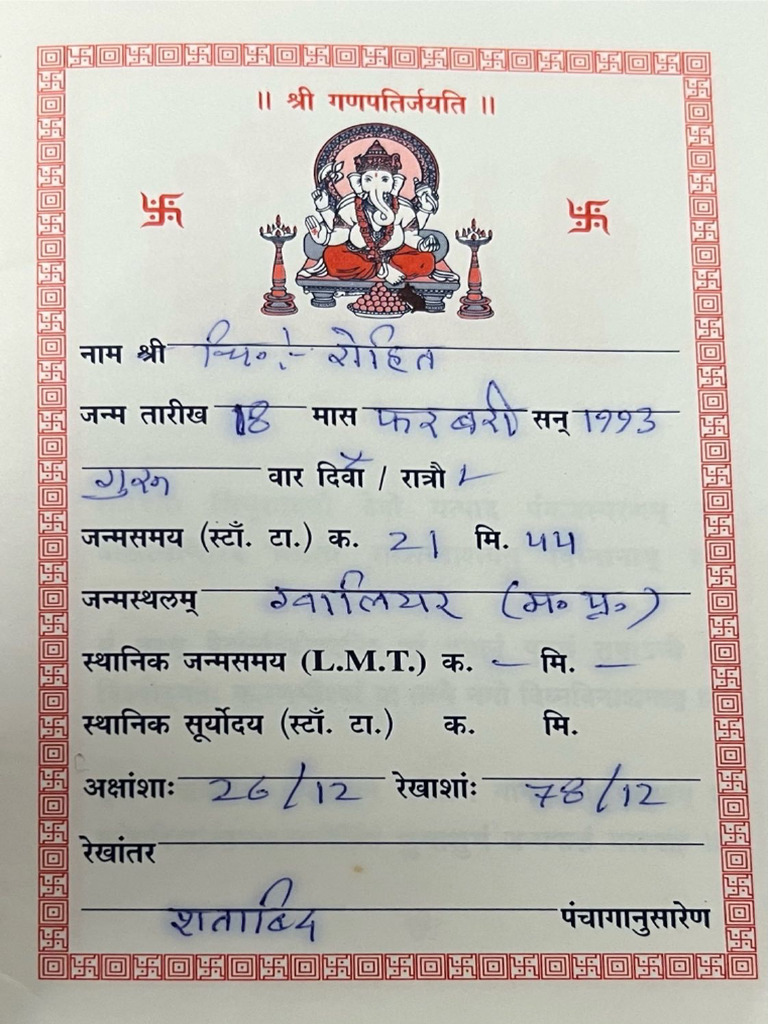 ॥ श्री गणपतिर्जयति ॥
नाम श्री चि० :- रोहित
जन्म तारीख 18 मास फरबरी सन् १९९३
गुरू वार दिवा / रात्रौ ✓
जन्मसमय (स्टाँ. टा.) क. 21 मि. ५५
जन्मस्थलम् ग्वालियर (म० प्र०)
स्थानिक जन्मसमय (L.M.T.) क. – मि. –
स्थानिक सूर्योदय (स्टाँ. टा.) क. मि.
अक्षांशाः 26/12 रेखाशांः 78/12
रेखांतर
शताब्दि पंचागानुसारेण